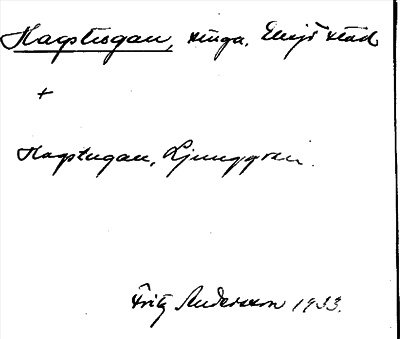 Hagstugan, stuga, Elleys städ
+
Hagstugan, Ljunggren.
Fritz Andersson 1933.